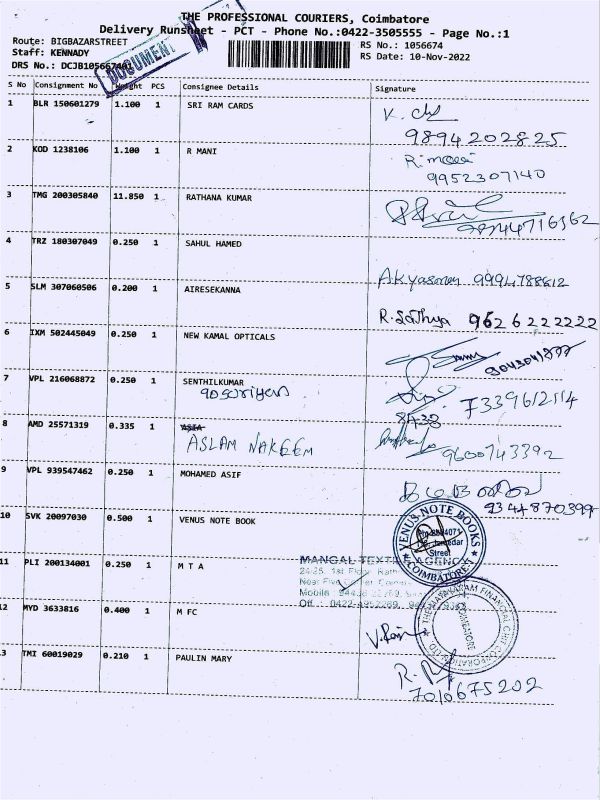 THE PROFESSIONAL COURIERS, Coimbatore
Delivery Runsheet - PCT - Phone No.:0422-3505555 - Page No.:1
Route: BIGBAZARSTREET
RS No.: 1056674
Staff: KENNADY
RS Date: 10-Nov-2022
DRS No.: DCJB105667401
DOCUMENT
S No Consignment No Weight PCS Consignee Details Signature
1 BLR 150601279 1.100 1 SRI RAM CARDS
9894202825
2 KOD 1238106 1.100 1 R MANI R. mani
9952307140
3 TMG 200305840 11.850 1 RATHANA KUMAR
4 TRZ 180307049 0.250 1 SAHUL HAMED
5 SLM 307060506 0.200 1 AIRESEKANNA
R. Sathya 9626222222
6 IXM 502445049 0.250 1 NEW KAMAL OPTICALS
7 VPL 216068872 0.250 1 SENTHILKUMAR
7339612114
8 AMD 25571319 0.335 1
ASLAM NAKEEM 9600743392
9 VPL 939547462 0.250 1 MOHAMED ASIF
9344870399
10 SVK 20097030 0.500 1 VENUS NOTE BOOK
VENUS NOTE BOOKS
Street
COIMBATORE
11 PLI 200134001 0.250 1 M T A
MANGAL TEXTILE AGENCY
12 MYD 3633816 0.400 1 M FC
13 TMI 60019029 0.210 1 PAULIN MARY
7010675202